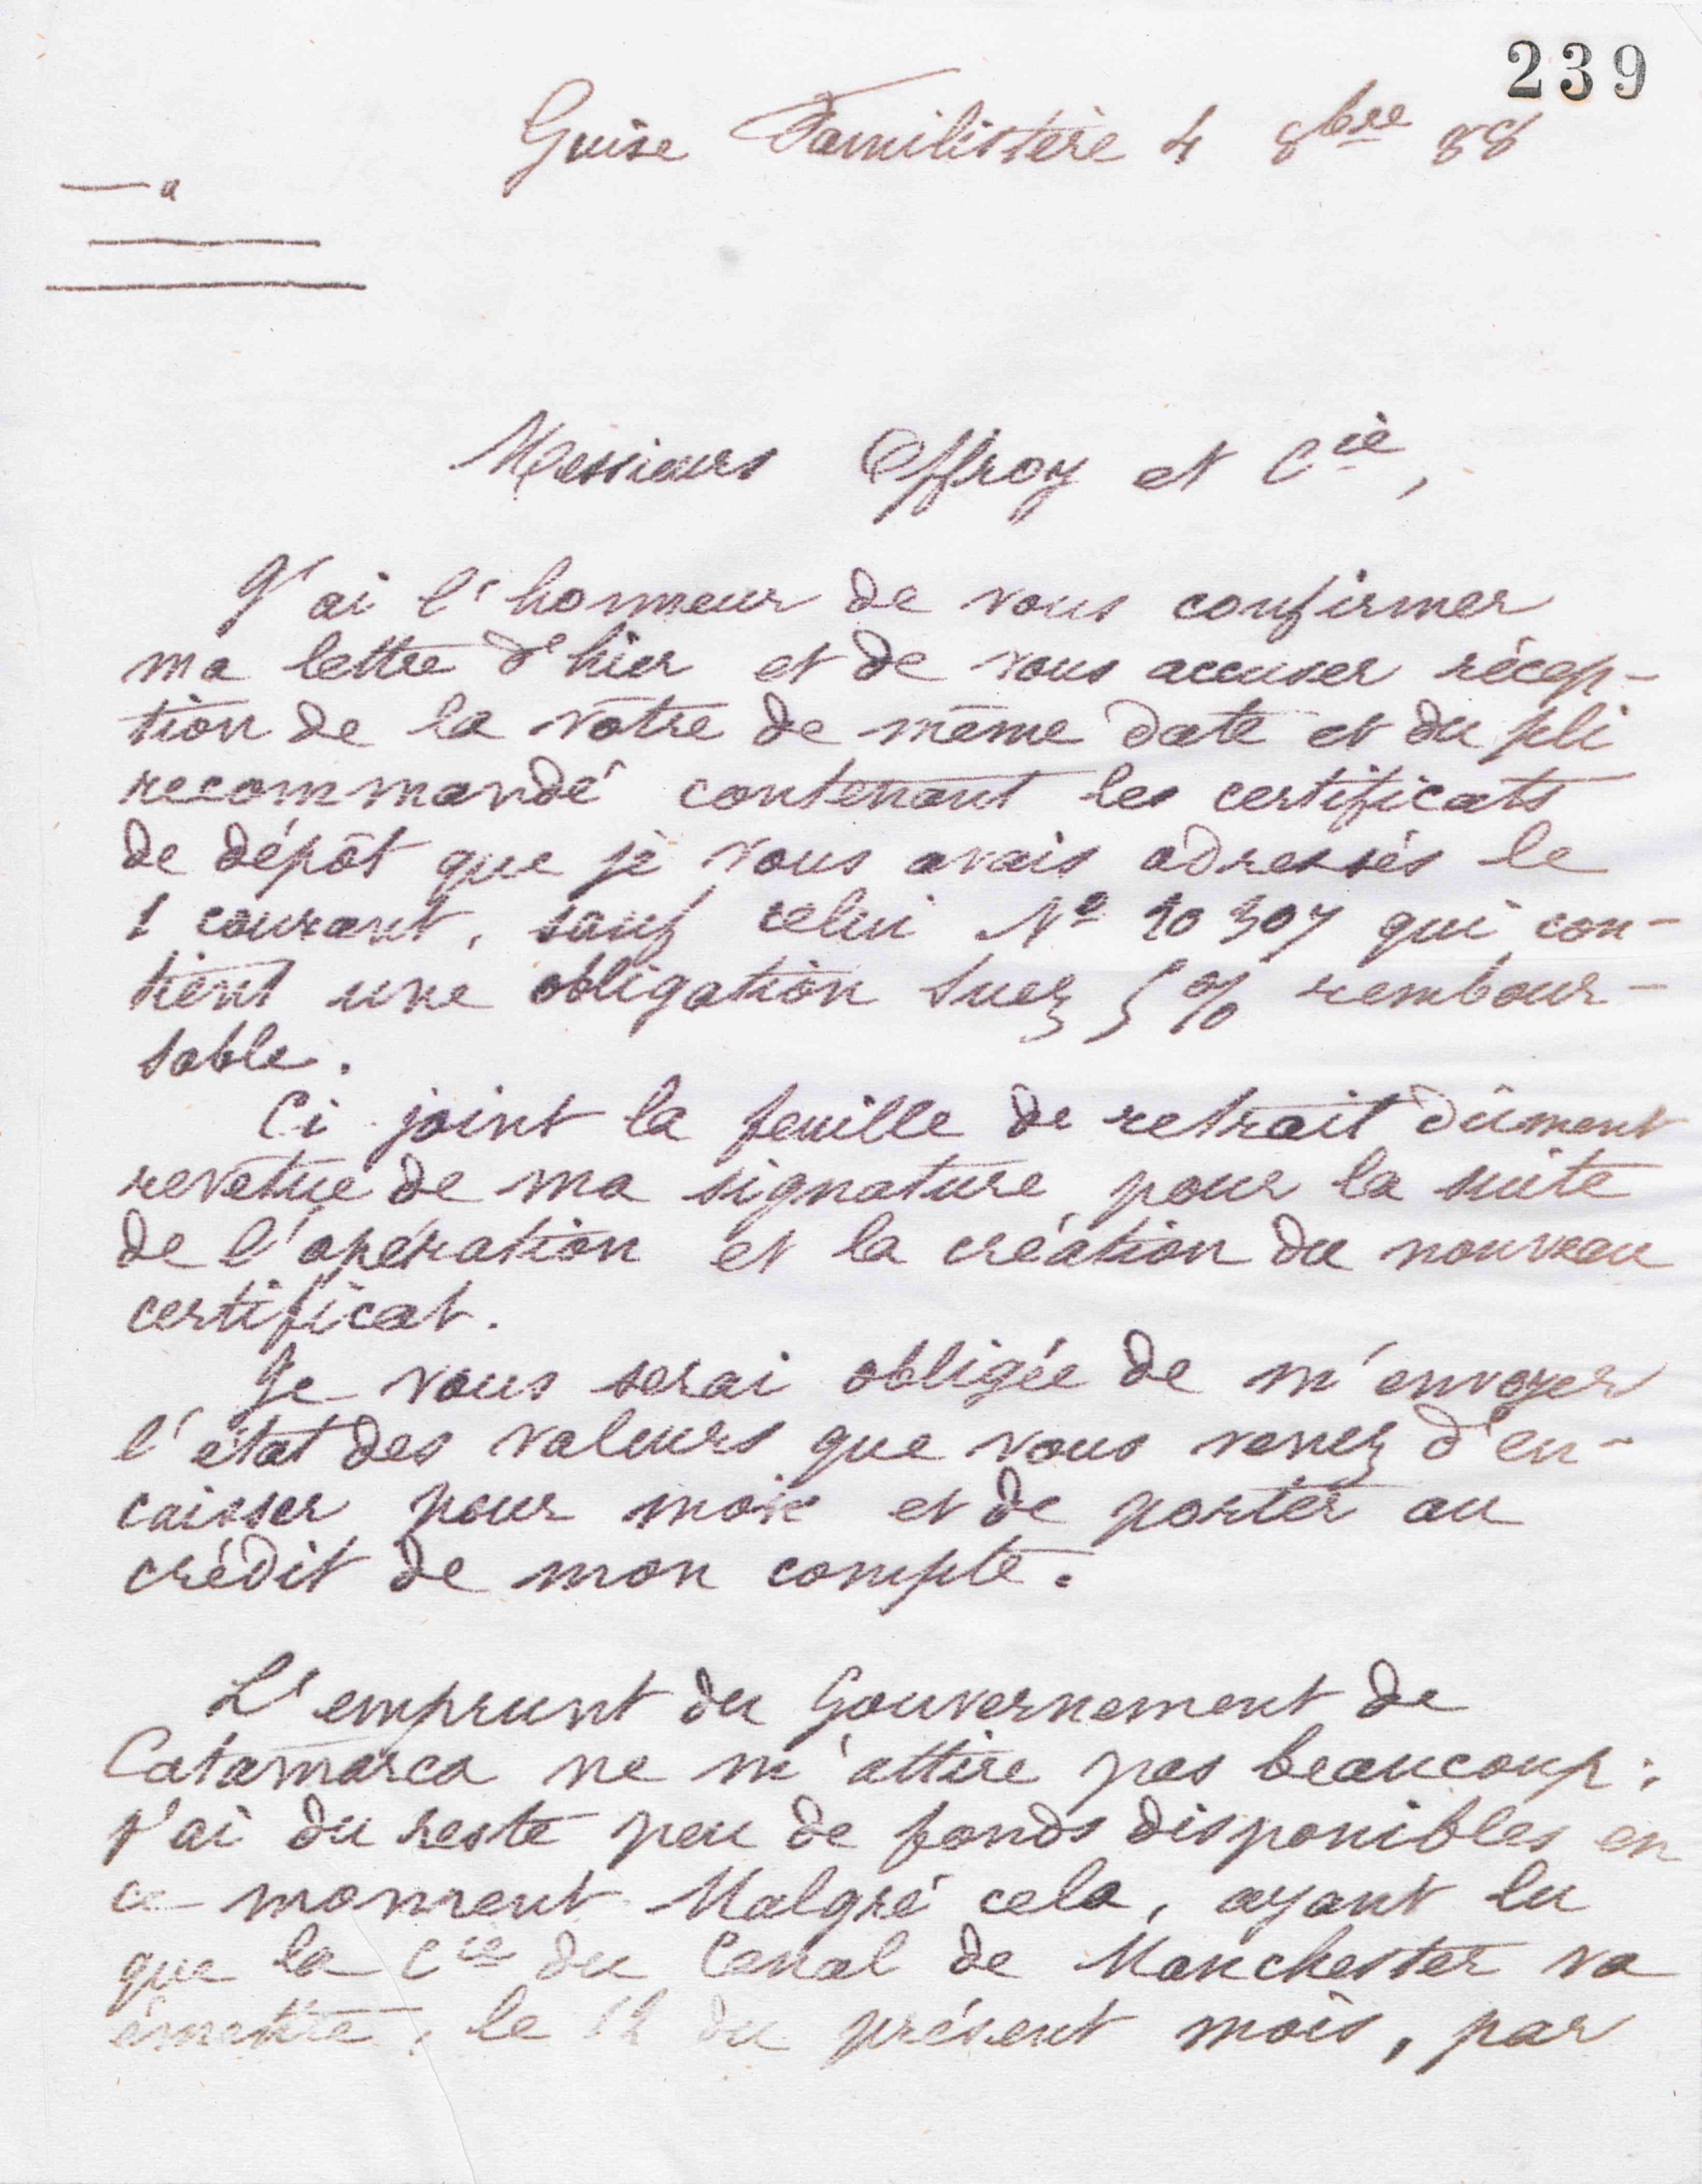 239
Guise Familistère 4 8bre 88
a
Messieurs Offroy et Cie,
J'ai l'honneur de vous confirmer
ma lettre d'hier et de vous accuser récep-
tion de la vôtre de même date et du pli
recommandé contenant les certificats
de dépôt que je vous avais adressés le
1 courant, sauf celui No 20 307 qui con-
tient une obligation Suez 5 % rembour-
sable.
Ci joint la feuille de retrait dûment
revêtue de ma signature pour la suite
de l'opération et la création du nouveau
certificat.
Je vous serai obligée de m'envoyer
l'état des valeurs que vous venez d'en-
caisser pour moi et de porter au
crédit de mon compte.
L'emprunt du Gouvernement de
Catamarca ne m'attire pas beaucoup;
j'ai du reste peu de fonds disponibles en
ce moment. Malgré cela, ayant lu
que la Cie du Canal de Manchester va
émettre, le 12 du présent mois, par